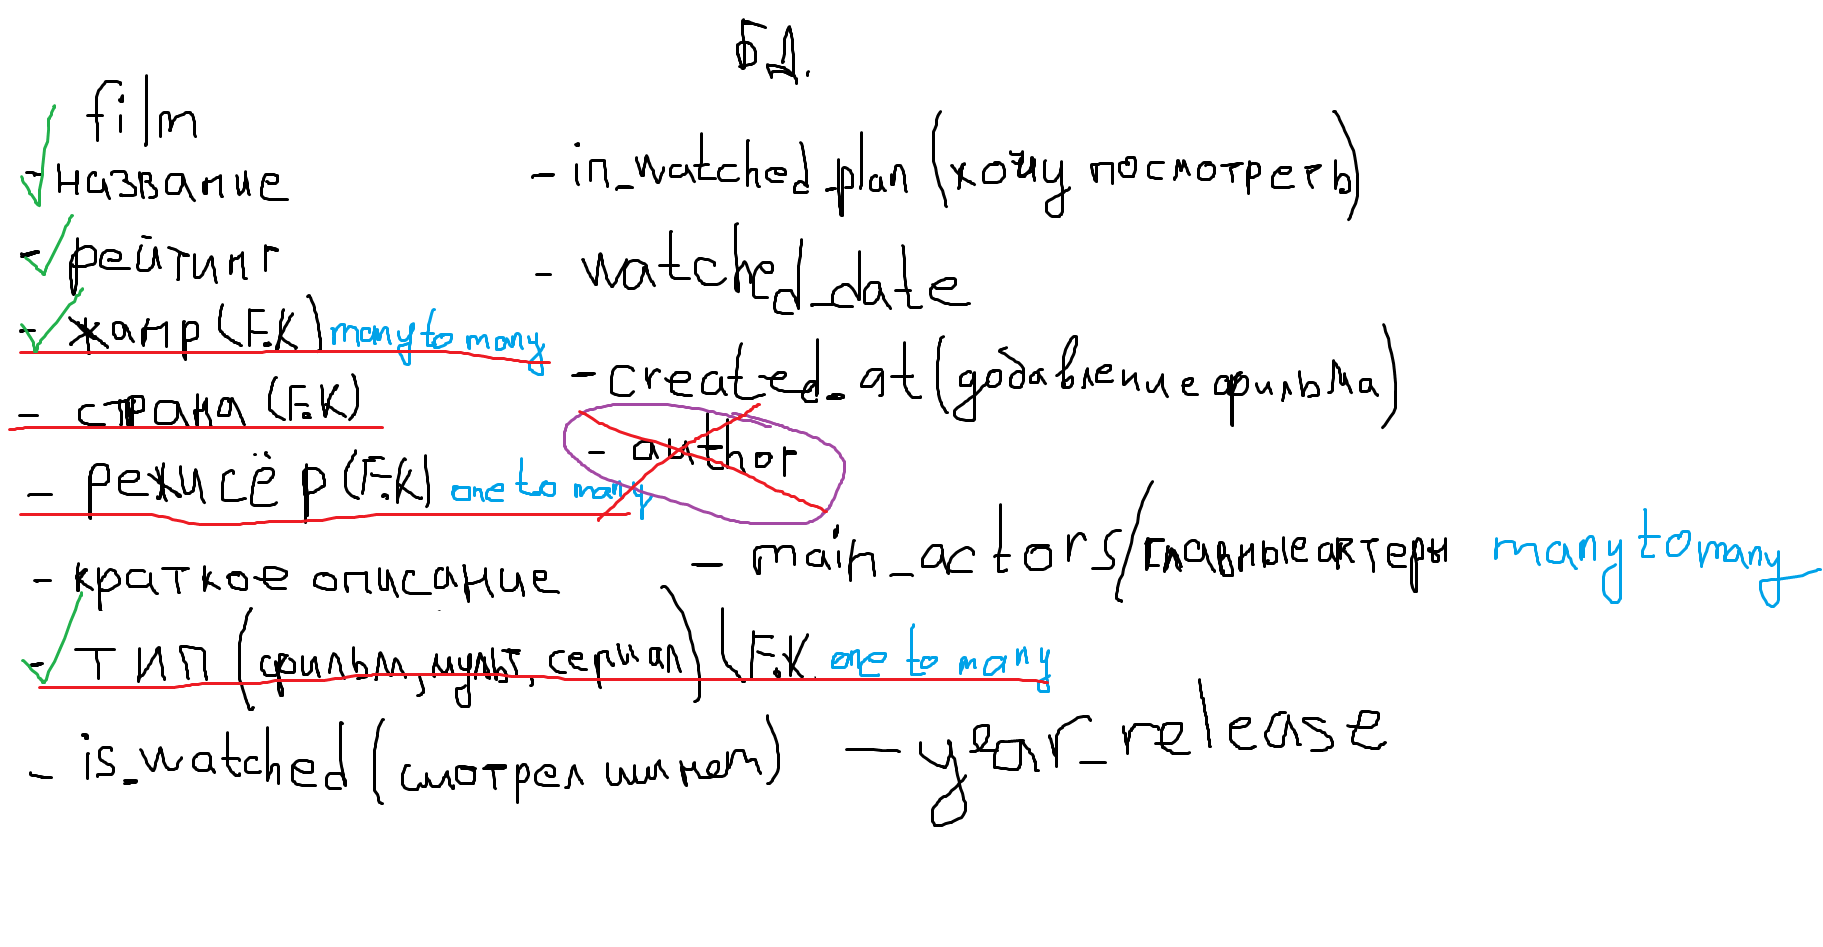 БД.
film
- название
- рейтинг
- жанр (F.K) many to many
- страна (F.K)
- режисёр (F.K) one to many
- краткое описание
- тип (фильм, мульт, сериал) (F.K one to many
- is_watched (смотрел или нет)
- in_watched_plan (хочу посмотреть)
- watched_date
- created_at (додавление фильма)
- author
- main_actors/главные актеры many to many
- year_release